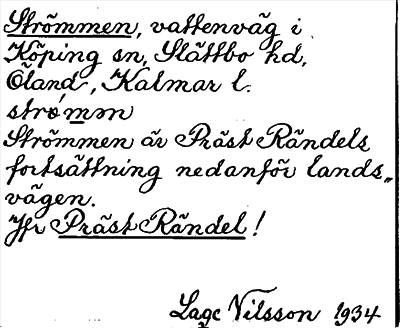 Strömmen, vattenväg i
Köping sn, Slättbo hd,
Öland, Kalmar l.
strö́mən
Strömmen är Präst Rändels
fortsättning nedanför lands„
vägen.
Jfr Präst Rändel!
Lage Nilsson 1934